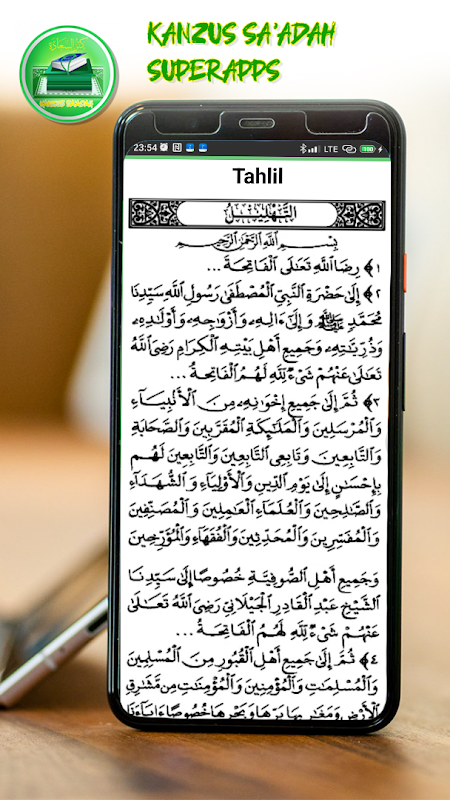 KANZUS SA'ADAH
SUPERAPPS
KANZUS SAADAH
23:54
LTE
100
Tahlil
التَّهْلِيْلُ
بِسْمِ اللّٰهِ الرَّحْمٰنِ الرَّحِيْمِ
١﴾ رِضَا اللّٰهِ تَعَالَى الْفَاتِحَةَ ...
٢﴾ إِلَى حَضْرَةِ النَّبِيِّ الْمُصْطَفَى رَسُولِ اللّٰهِ سَيِّدِنَا
مُحَمَّدٍ ﷺ وَإِلَى ءَالِهِ وَأَزْوَاجِهِ وَأَوْلَادِهِ،
وَذُرِّيَّتِهِ، وَجَمِيعِ أَهْلِ بَيْتِهِ الْكِرَامِ رَضِيَ اللّٰهُ
تَعَالَى عَنْهُمْ شَيْءٌ لِلّٰهِ لَهُمُ الْفَاتِحَةُ ...
٣﴾ ثُمَّ إِلَى جَمِيعِ إِخْوَانِهِ، مِنَ الْأَنْبِيَاءِ
وَالْمُرْسَلِينَ وَالْمَلَئِكَةِ الْمُقَرَّبِينَ وَالصَّحَابَةِ
وَالتَّابِعِينَ وَتَابِعِى التَّابِعِينَ وَالتَّابِعِينَ لَهُمْ
بِإِحْسَنٍ إِلَى يَوْمِ الدِّينِ وَالْأَوْلِيَاءِ وَالشُّهَدَاءِ
وَالصَّلِحِينَ وَالْعُلَمَاءِ الْعَمِلِينَ وَالْمُصَنِّفِينَ
وَالْمُفَسِّرِينَ وَالْمُحَدِّثِينَ وَالْفُقَهَاءِ وَالْمُؤَرِّخِينَ
وَجَمِيعِ أَهْلِ الصُّوفِيَّةِ خُصُوصًا إِلَى سَيِّدِنَا
الشَّيْخِ عَبْدِ الْقَادِرِ الْجَيْلَانِي رَضِيَ اللّٰهُ تَعَالَى
عَنْهُمْ شَيْءٌ لِلّٰهِ لَهُمُ الْفَاتِحَةُ ...
٤﴾ ثُمَّ إِلَى جَمِيعِ أَهْلِ الْقُبُورِ مِنَ الْمُسْلِمِينَ
وَالْمُسْلِمَاتِ وَالْمُؤْمِنِينَ وَالْمُؤْمِنَاتِ مِنْ مَشَارِقِ
الْأَرْضِ وَمَغَارِبِهَا بَرِّهَا وَبَحْرِهَا خُصُوصًا ءَابَاءَنَا